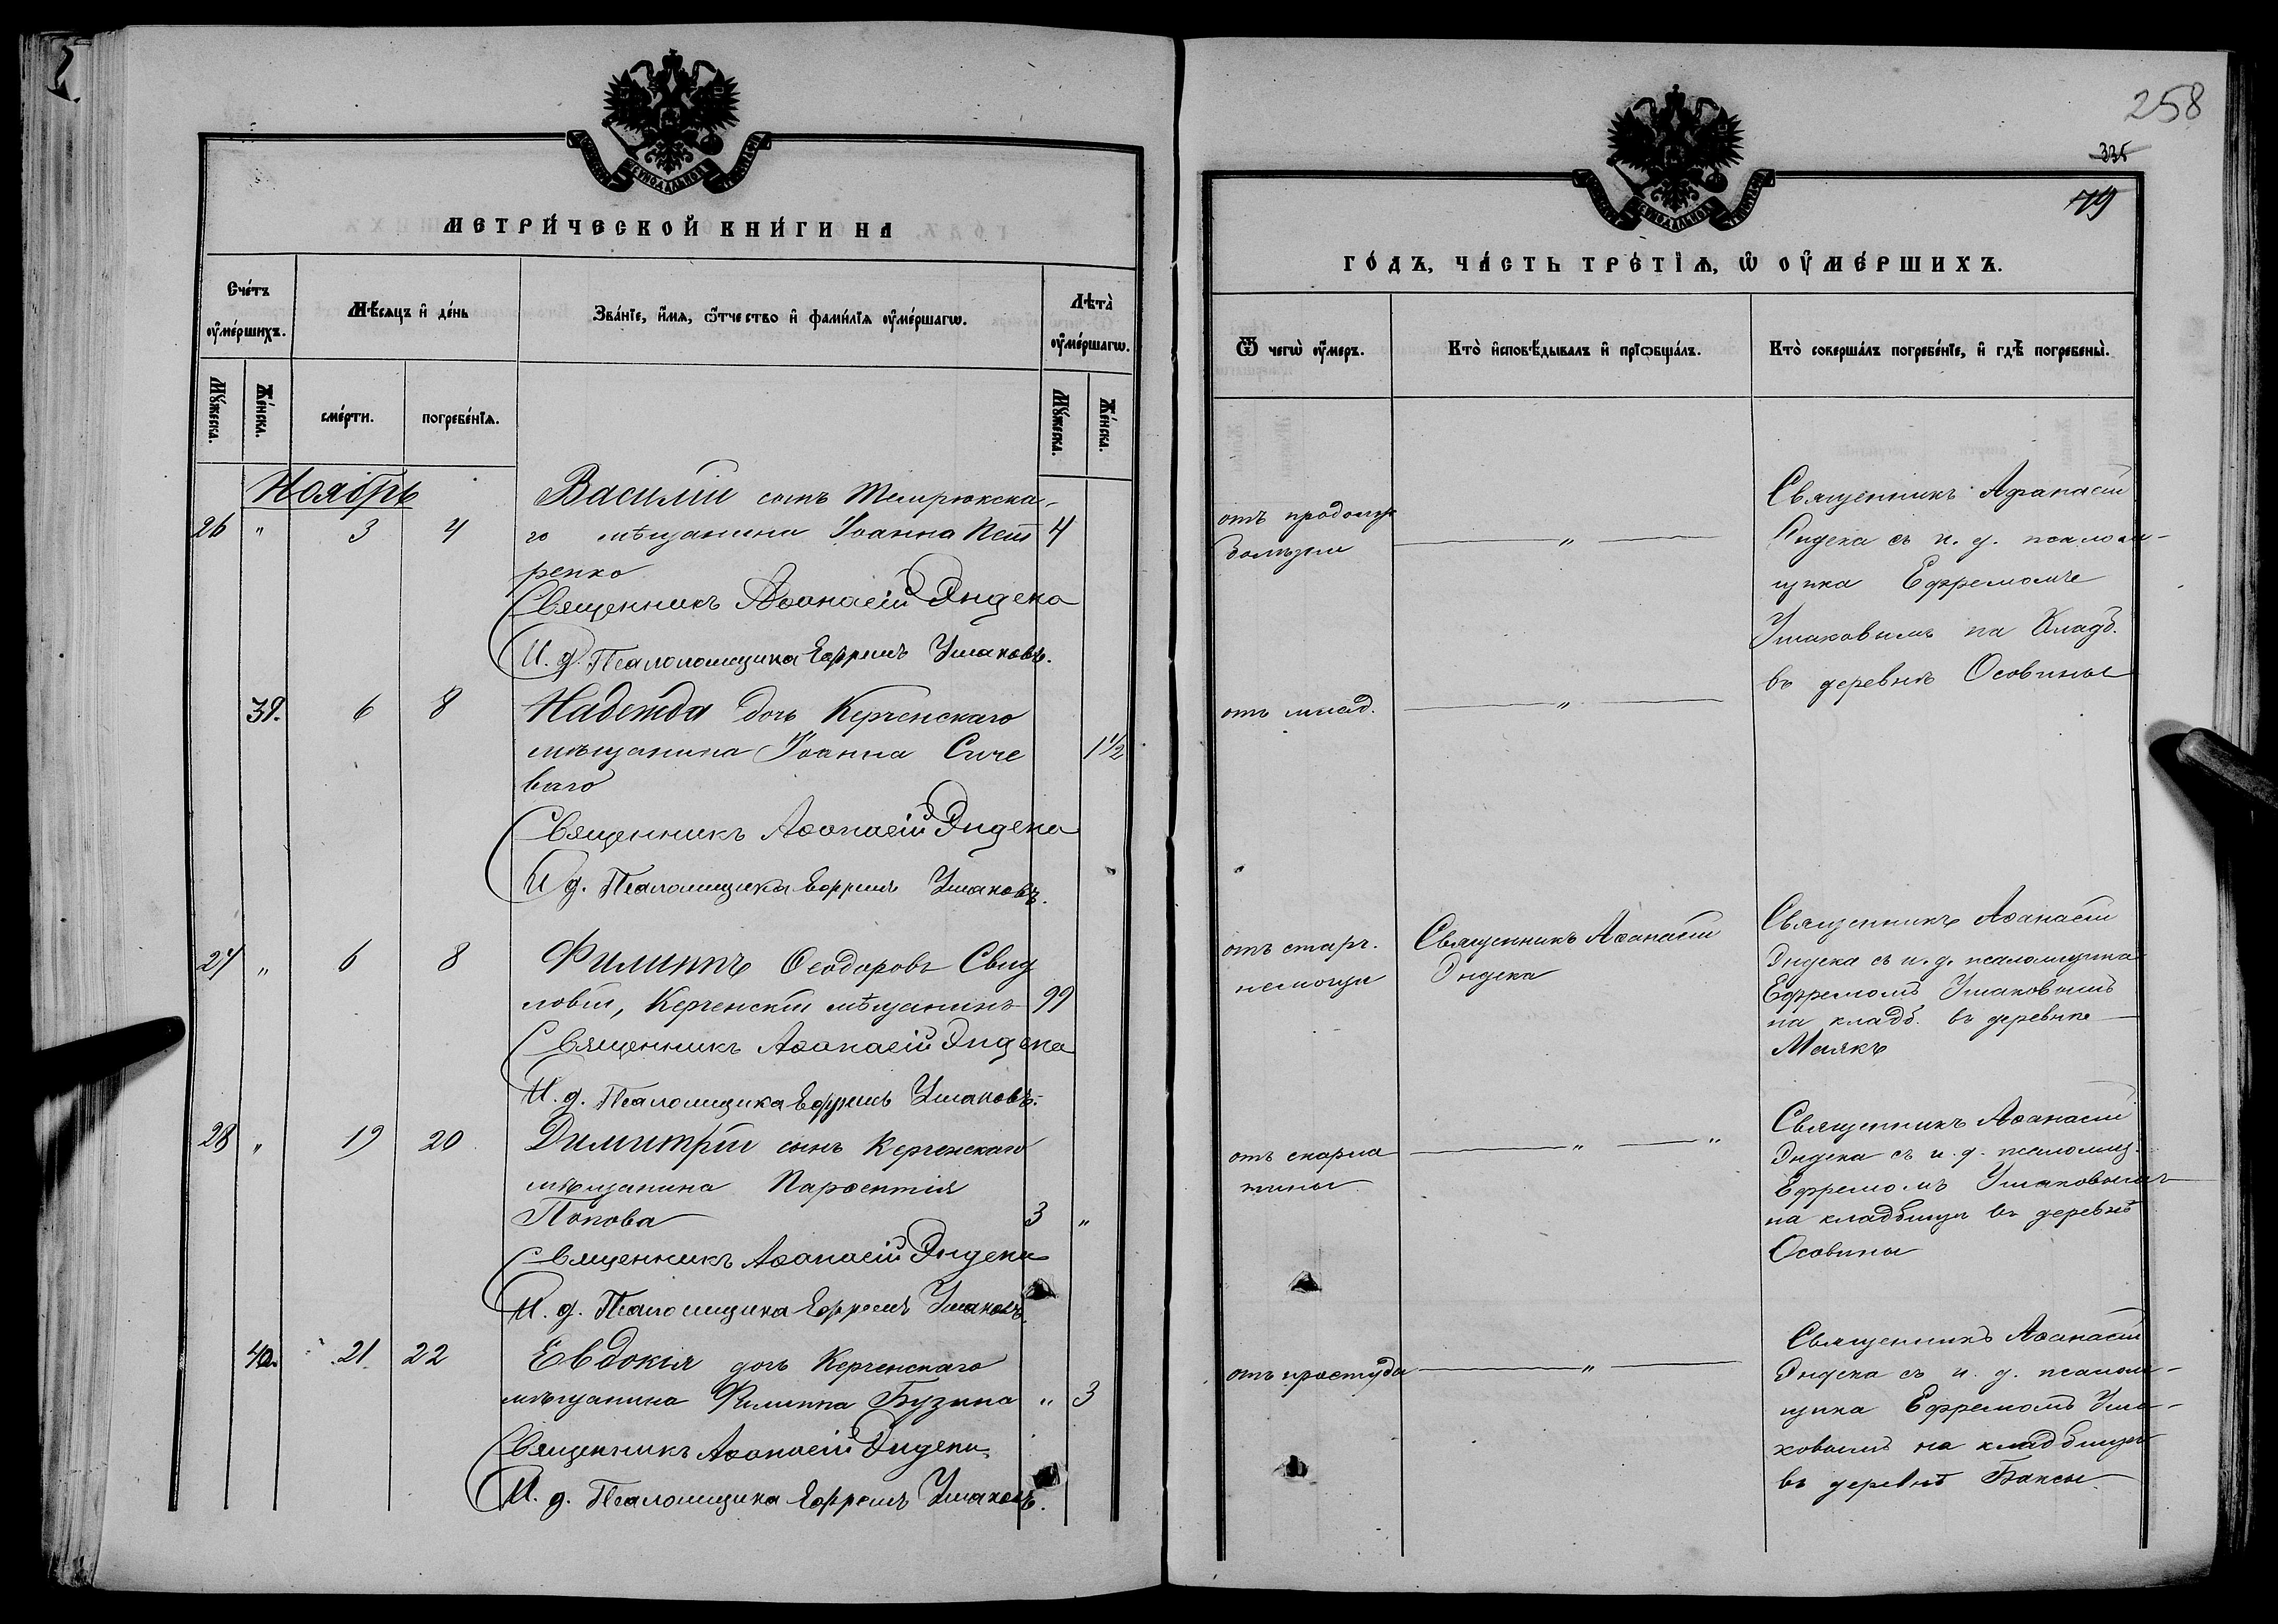 МЕТРИ́ЧЕСКОЙ КНИ́ГИ НА
Сче́тъ оу҆ме́ршихъ.
Мѣ́сяцъ и҆ де́нь
Зва́нїе, и҆́мя, ѻ҆́тчество и҆ фами́лїя оу҆ме́ршагѡ.
Лѣта̀ оу҆ме́ршагѡ.
Му́жеска.
Же́нска.
сме́рти.
погребе́нїя.
Му́жеска.
Же́нска.
Ноябрь
26 " 3 4
Василій сынъ Темрюкска-
го мѣщанина Іоанна Пет 4
ренко
Священникъ Аѳанасій Эндека
И. д. Псаломщика Ефремъ Ушаковъ.
39. 6 8
Надежда дочь Керченскаго
мѣщанина Іоанна Сиче 1 1/2
ваго
Священникъ Аѳанасій Эндека
И д. Псаломщика Ефремъ Ушаковъ.
27 " 6 8
Филиппъ Ѳеодоровъ Свид
ловій, Керченскій мѣщанинъ 99
Священникъ Аѳанасій Эндека
И. д. Псаломщика Ефремъ Ушаковъ.
28 " 19 20
Димитрій сынъ Керченскаго
мѣщанина Парѳентія
Попова 3 "
Священникъ Аѳанасій Эндека
И. д. Псаломщика Ефремъ Ушаковъ.
40. 21 22
Евдокія дочь Керченскаго
мѣщанина Филиппа Бузина " 3
Священникъ Аѳанасій Эндека
И. д. Псаломщика Ефремъ Ушаковъ.
258
335
79
ГО́ДЪ, ЧА́СТЬ ТРЕ́ТЇЯ, Ѡ҆ ОУ҆МЕ́РШИХЪ.
Ѿ чегѡ̀ оу҆́меръ.
Кто̀ и҆сповѣ́дывалъ и҆ прїѡбща́лъ.
Кто̀ соверша́лъ погребе́нїе, и҆ гдѣ̀ погребены̀.
отъ продолж
болѣзни
"
Священникъ Афанасій
Эндека съ и. д. псалом-
щика Ефремомъ
Ушаковымъ на Кладб.
въ деревнѣ Осовины
отъ млад.
"
отъ старч.
немощи
Священникъ Аѳанасій
Эндека
Священникъ Аѳанасій
Эндека съ и. д. псаломщика
Ефремомъ Ушаковымъ
на кладб. въ деревнѣ
Маякъ
отъ скарла
тины
" "
Священникъ Аѳанасій
Эндека съ и. д. псаломщ.
Ефремомъ Ушаковымъ
на кладбищѣ въ деревнѣ
Осовины
отъ простуды
"
Священникъ Аѳанасій
Эндека съ и. д. псалом-
щика Ефремомъ Уша-
ковымъ на кладбищѣ
въ деревнѣ Баксы